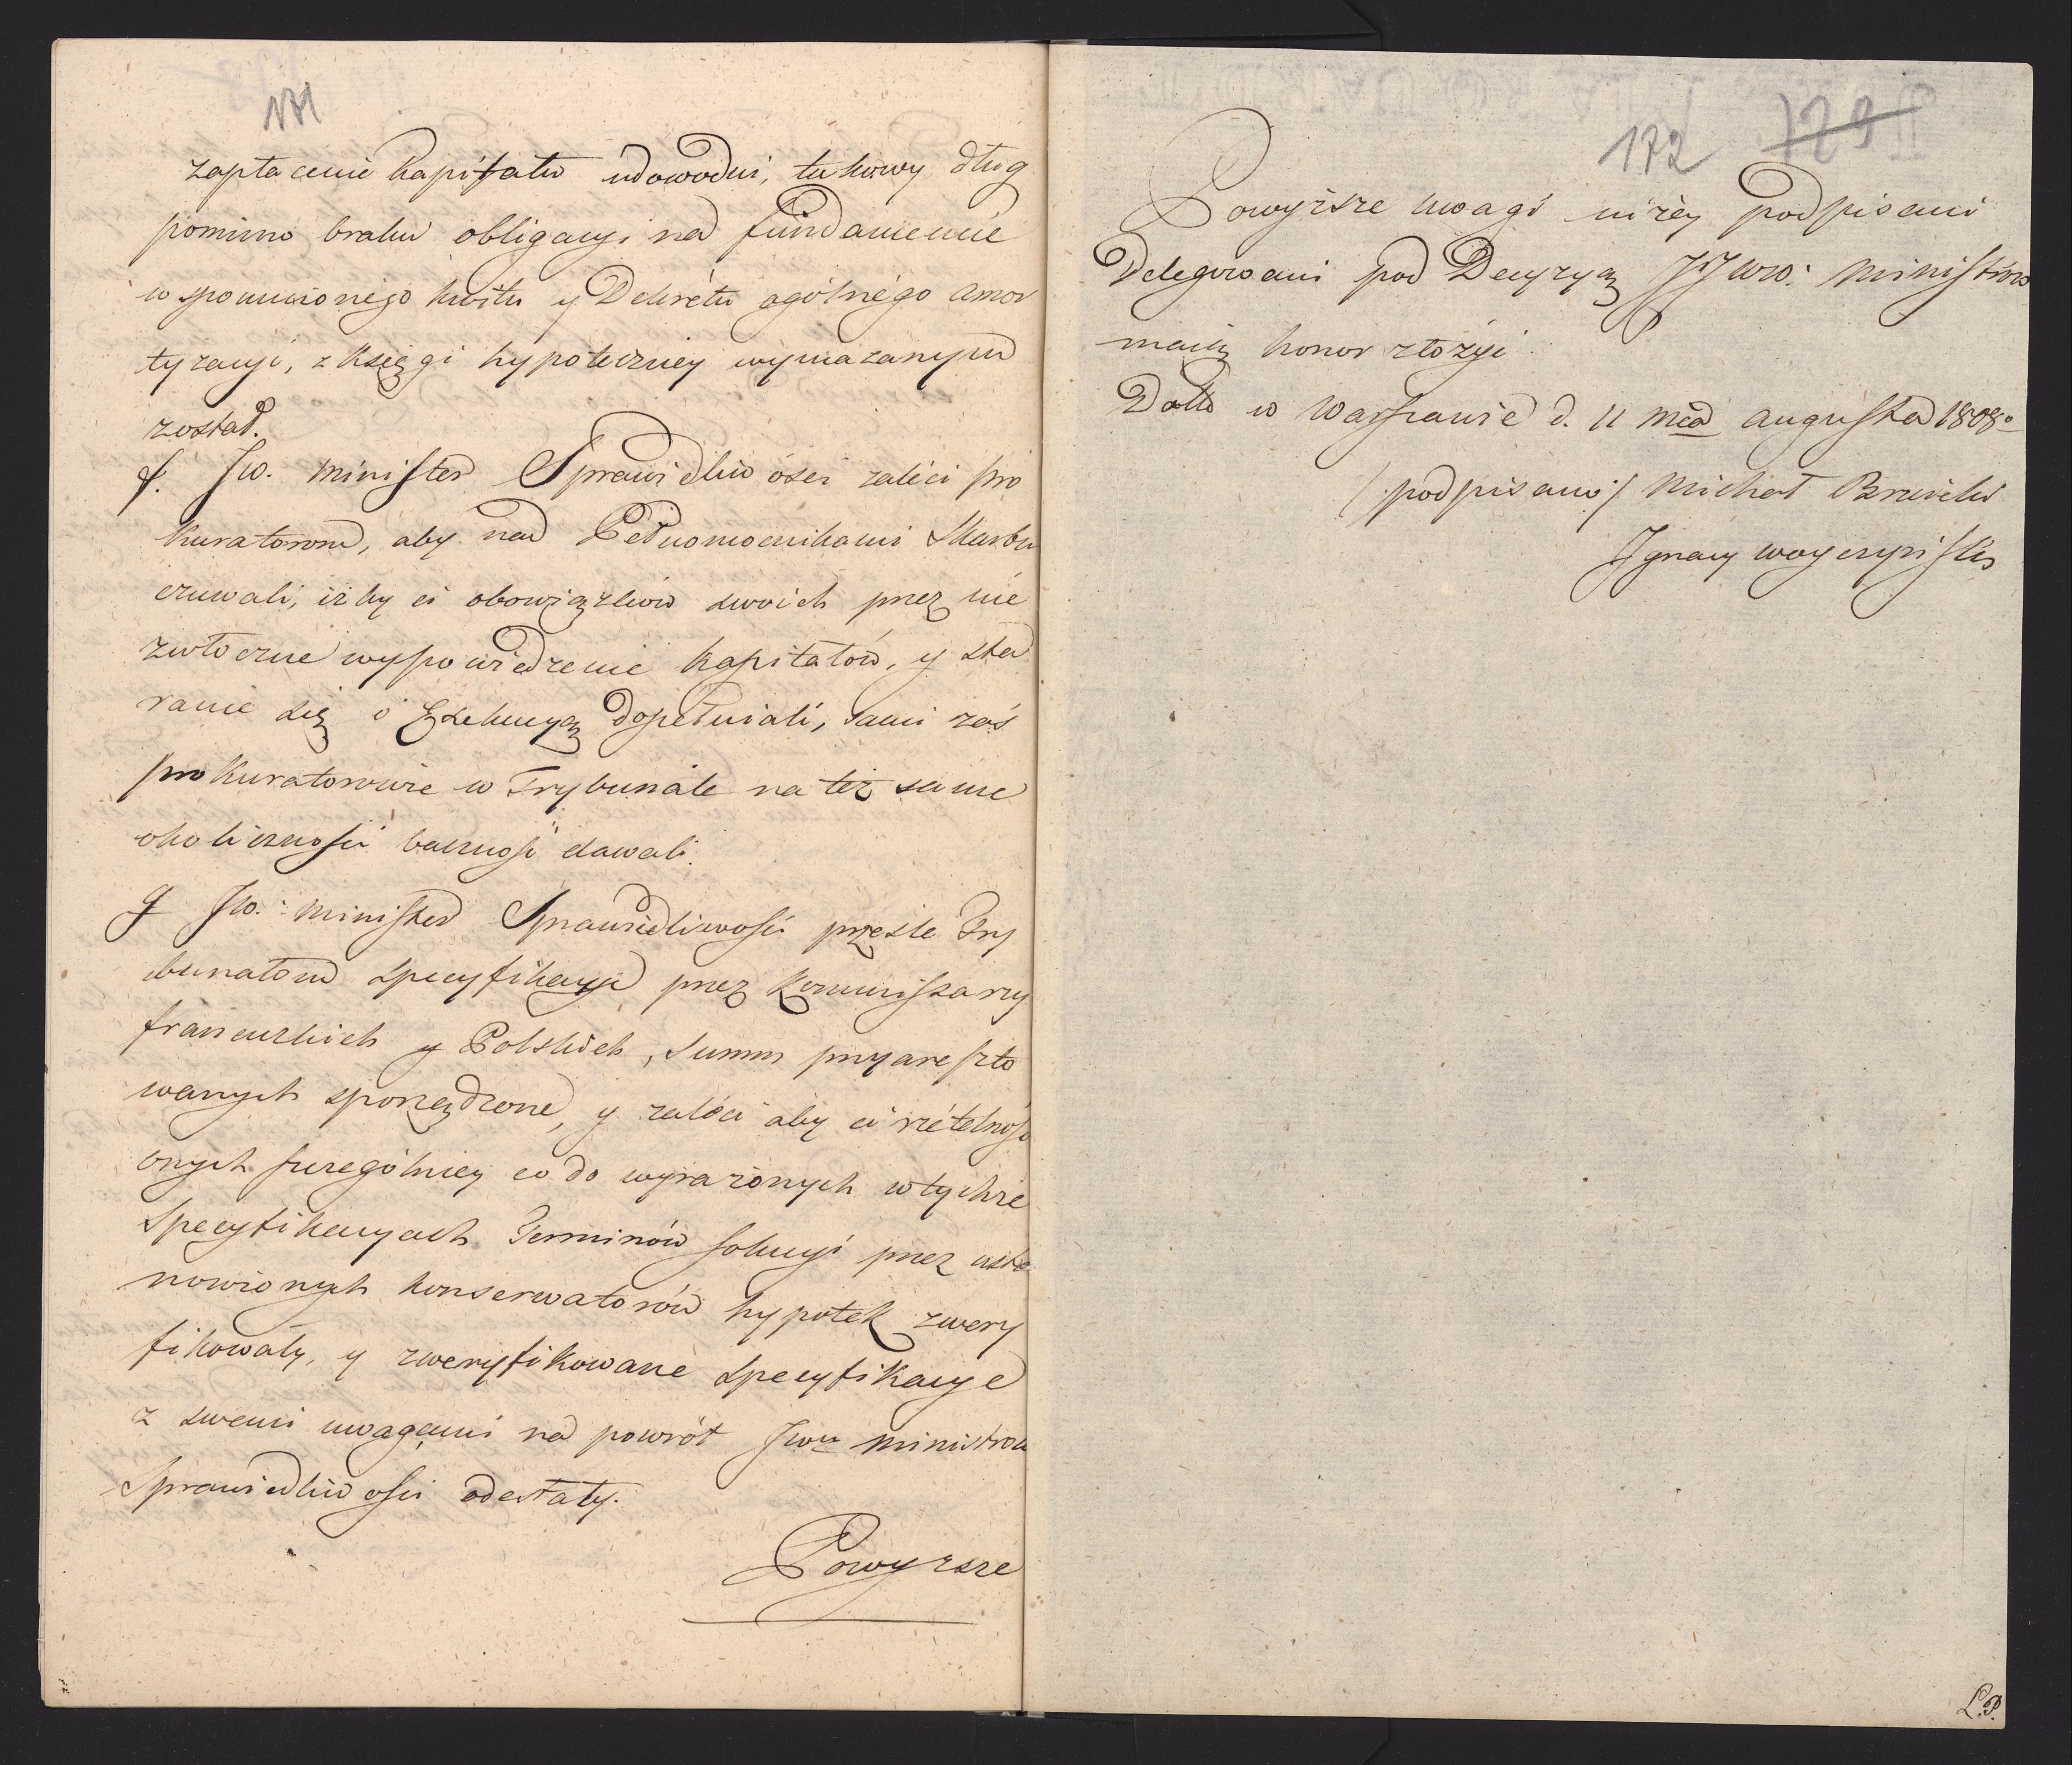 171
zapłacenie kapitału udowodni, takowy dług
pomimo braku obligacyi na fundamencie
wspomnionego kwitu y Dekretu ogólnégo amor
tyzacyi, z księgi hypoteczney wymazanym
został.
f. JW. Minister Sprawiedliwości zaléci pro
kuratorom, aby nad Pełnomocnikami Skarbu
czuwali, iżby ci obowiązków swoich przez nie
zwłoczne wypowiedzenie kapitałów, y sta
ranie się o Exekucyą dopełniali, sami zaś
prokuratorowie w Trybunale na też same
okoliczności baczność dawali.
g JW. Minister Sprawiedliwości prześle Try
bunałom specyfikacye przez Kommissarzy
francuzkich y Polskich, summ przyareszto
wanych sporządzone, y zaléci aby ci rzételność
onych szczególniey co do wyrażonych w tychże
Specyfikacyach Terminów solucyi przez usta
nowionych konserwatorów hypotek zwery
fikowały, y zweryfikowane specyfikacye
z swemi uwagami na powrót JWu Ministrowi
Sprawiedliwości odesłały.
Powyższe
172 129
Powyższe uwagi niżey podpisani
Delegowani pod Decyzyą JJWW. Ministrów
maią honor złożyć
Datto w Warszawie d. 11 Mca Augusta 1808o
/podpisano/ Michał
Ignacy
L.P.